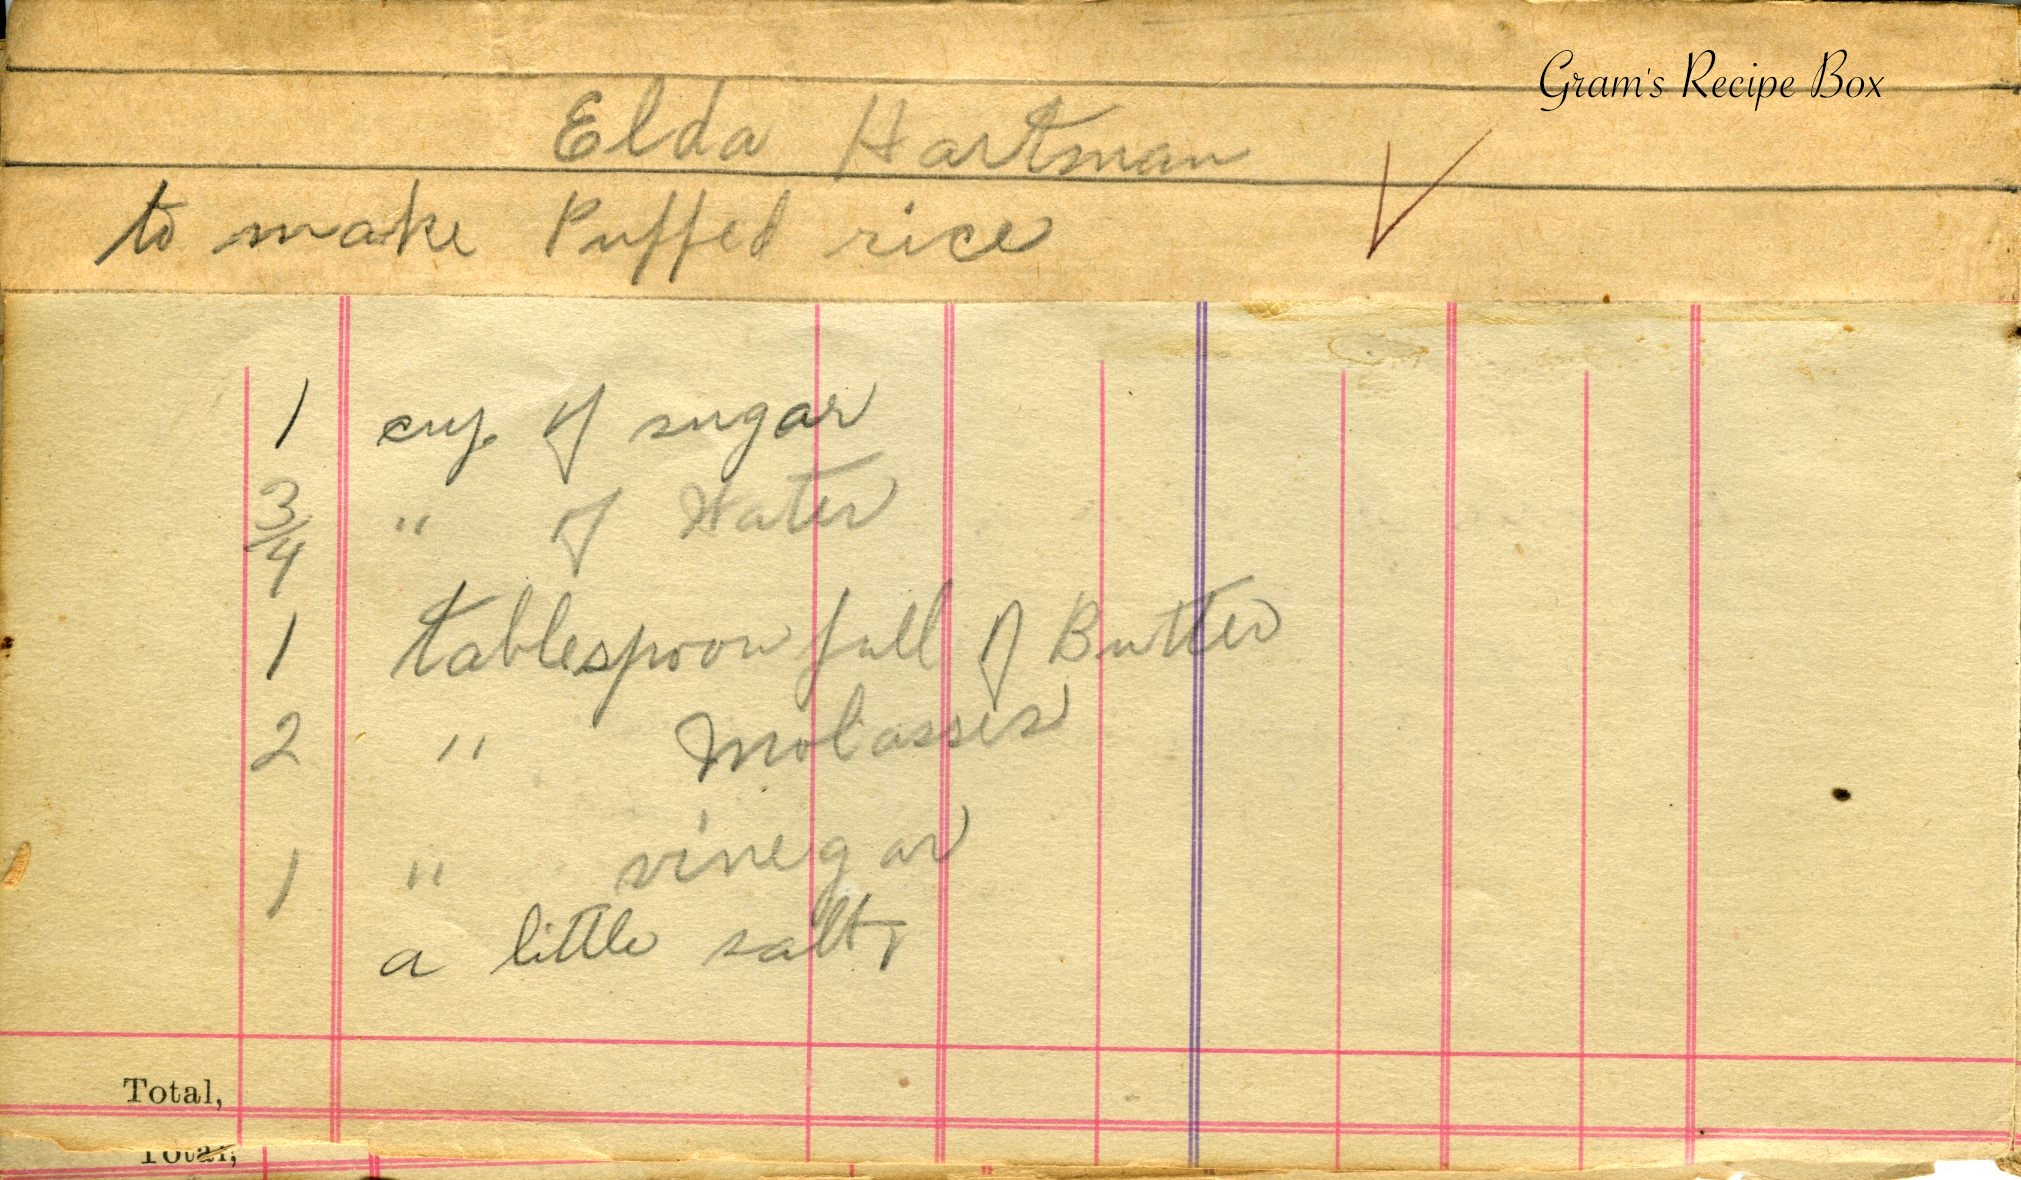 Gram's Recipe Box
Elda Hartman
to make Puffed rice
1 cup of sugar
3/4 " of Water
1 tablespoon full of Butter
2 " Molasses
1 " vinegar
a little salt
Total,
Total,